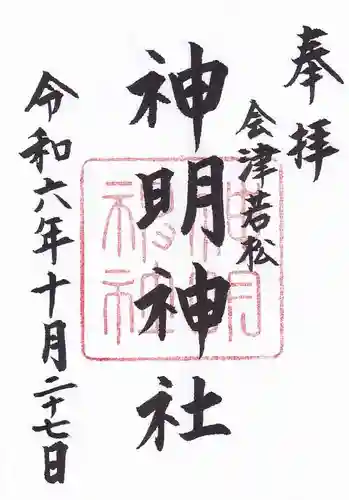 奉拝
会津若松
神明神社
令和六年十月二十七日
神明
神社